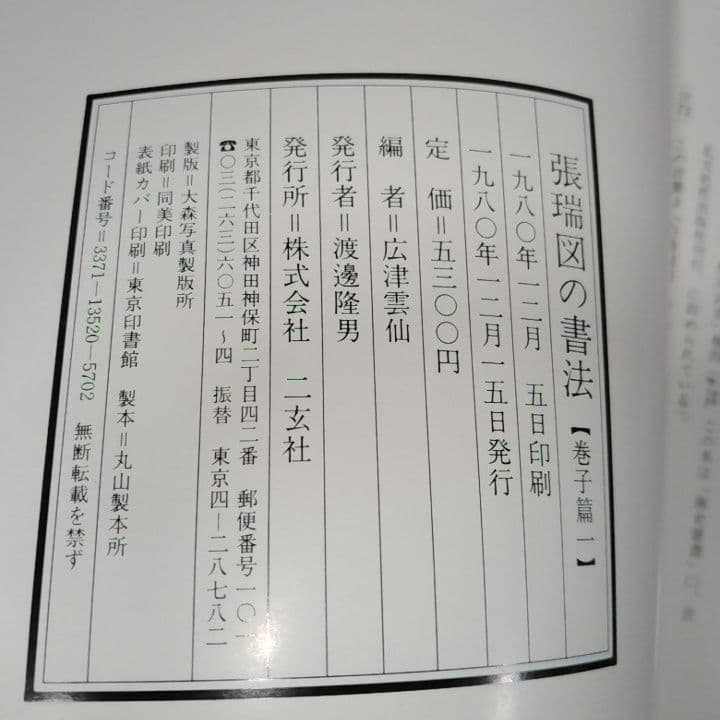 張瑞図の書法【巻子篇一】
一九八〇年一二月　五日印刷
一九八〇年一二月一五日発行
定　価＝五三〇〇円
編　者＝広津雲仙
発行者＝渡邊隆男
発行所＝株式会社　二玄社
東京都千代田区神田神保町二丁目四二番　郵便番号一〇一
☎〇三(二六三)六〇五一〜四　振替　東京四—二八七八二
製版＝大森写真製版所
印刷＝同美印刷
表紙カバー印刷＝東京印書館　製本＝丸山製本所
コード番号＝3371—13520—5702　無断転載を禁ず